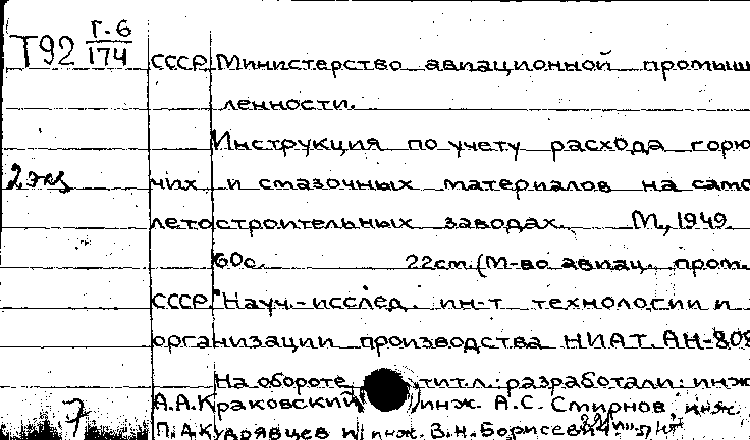 Т92 Г.6/174
СССР. Министерство авиационной промыш
ленности.
Инструкция по учету расхода горю
2 экз чих и смазочных материалов на само
летостроительных заводах. М., 1949
60с. 22см. (М-во авиац. пром.
СССР. Науч.-исслед. ин-т технологии и
организации производства НИАТ. АН-808
На обороте тит.л.: разработали: инж
А.А.Краковский, инж. А.С. Смирнов, инж.
7 П.А.Кудрявцев и инж. В.Н.Борисевич